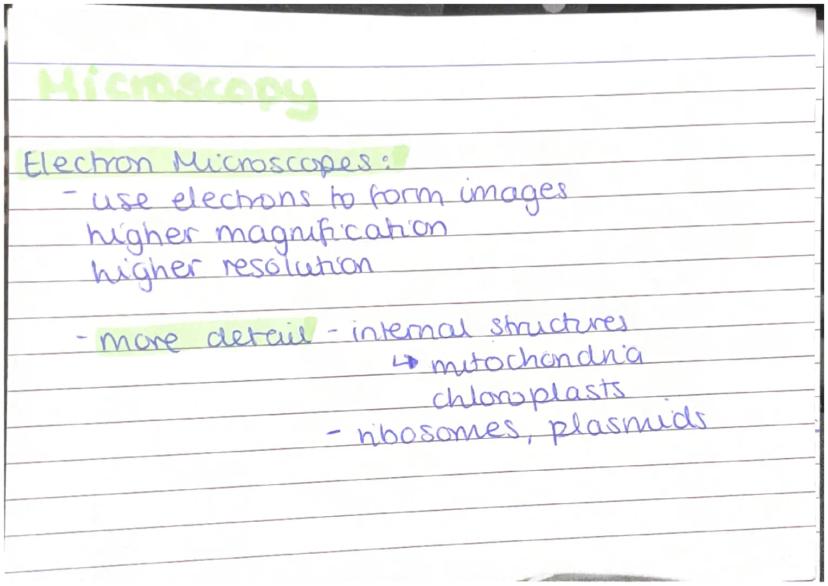 Microscopy
Electron Microscopes:
- use electrons to form images
higher magnification
higher resolution
- more detail - internal structures
↳ mitochondria
chloroplasts
- ribosomes, plasmids